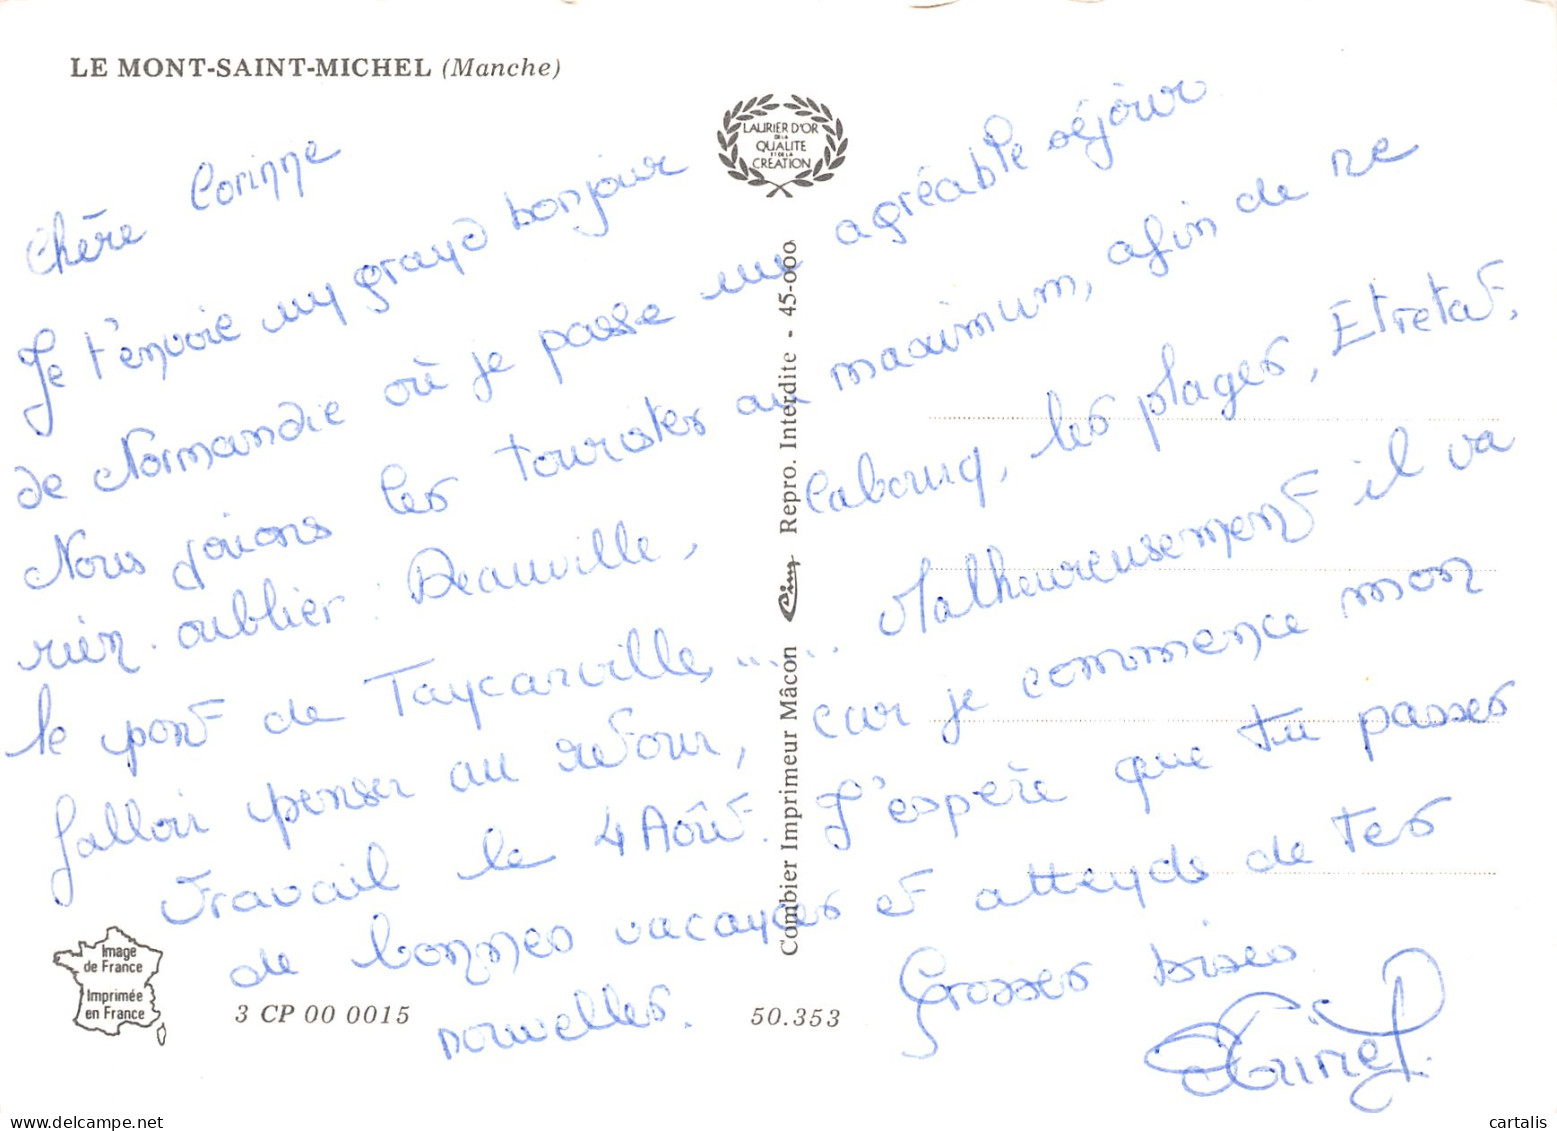 LE MONT-SAINT-MICHEL (Manche)
LAURIER D'OR
DE LA
QUALITE
ET DE LA
CREATION
Chère Corinne
Je t'envoie un grand bonjour
de Normandie où je passe un agréable séjour
Nous faisons les touristes au maximum, afin de ne
rien oublier : Deauville, Cabourg, les plages, Etretat,
le pont de Tancarville, ..... Malheureusement il va
falloir penser au retour, car je commence mon
travail le 4 Août. J'espère que tu passes
de bonnes vacances et attends de tes
nouvelles. Grosses bises
Combier Imprimeur Mâcon Cim Repro. Interdite - 45-000
Image
de France
Imprimée
en France
3 CP 00 0015
50.353
cartalis